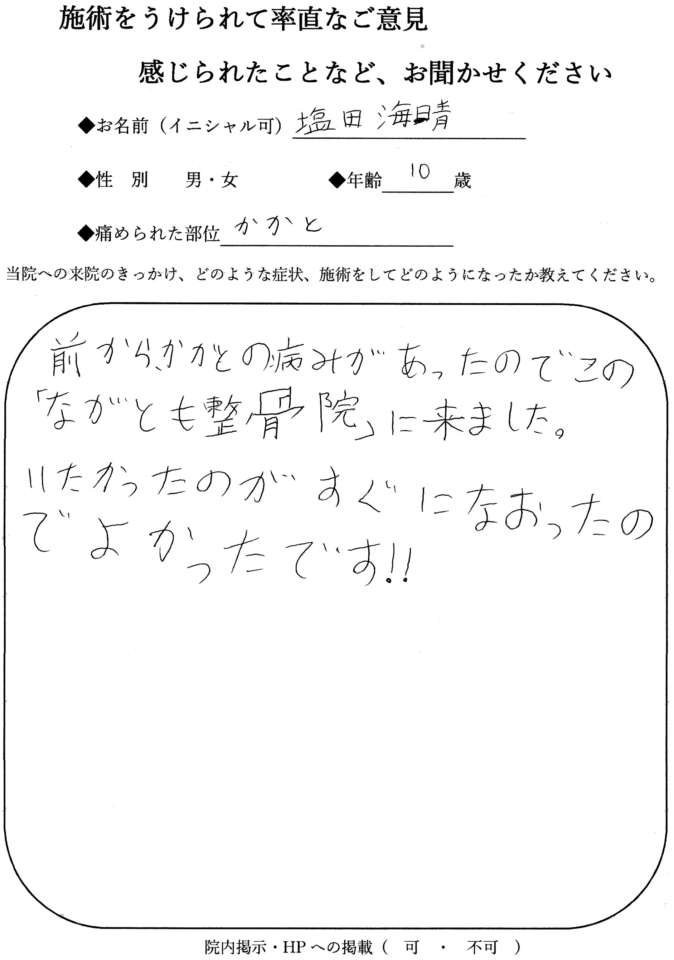 施術をうけられて率直なご意見
感じられたことなど、お聞かせください
◆お名前（イニシャル可）塩田 海晴
◆性 別 男・女 ◆年齢 10 歳
◆痛められた部位 かかと
当院への来院のきっかけ、どのような症状、施術をしてどのようになったか教えてください。
前から、かかとの病みがあったのでこの
「ながとも整骨院」に来ました。
いたかったのがすぐになおったの
でよかったです!!
院内掲示・HPへの掲載（ 可 ・ 不可 ）